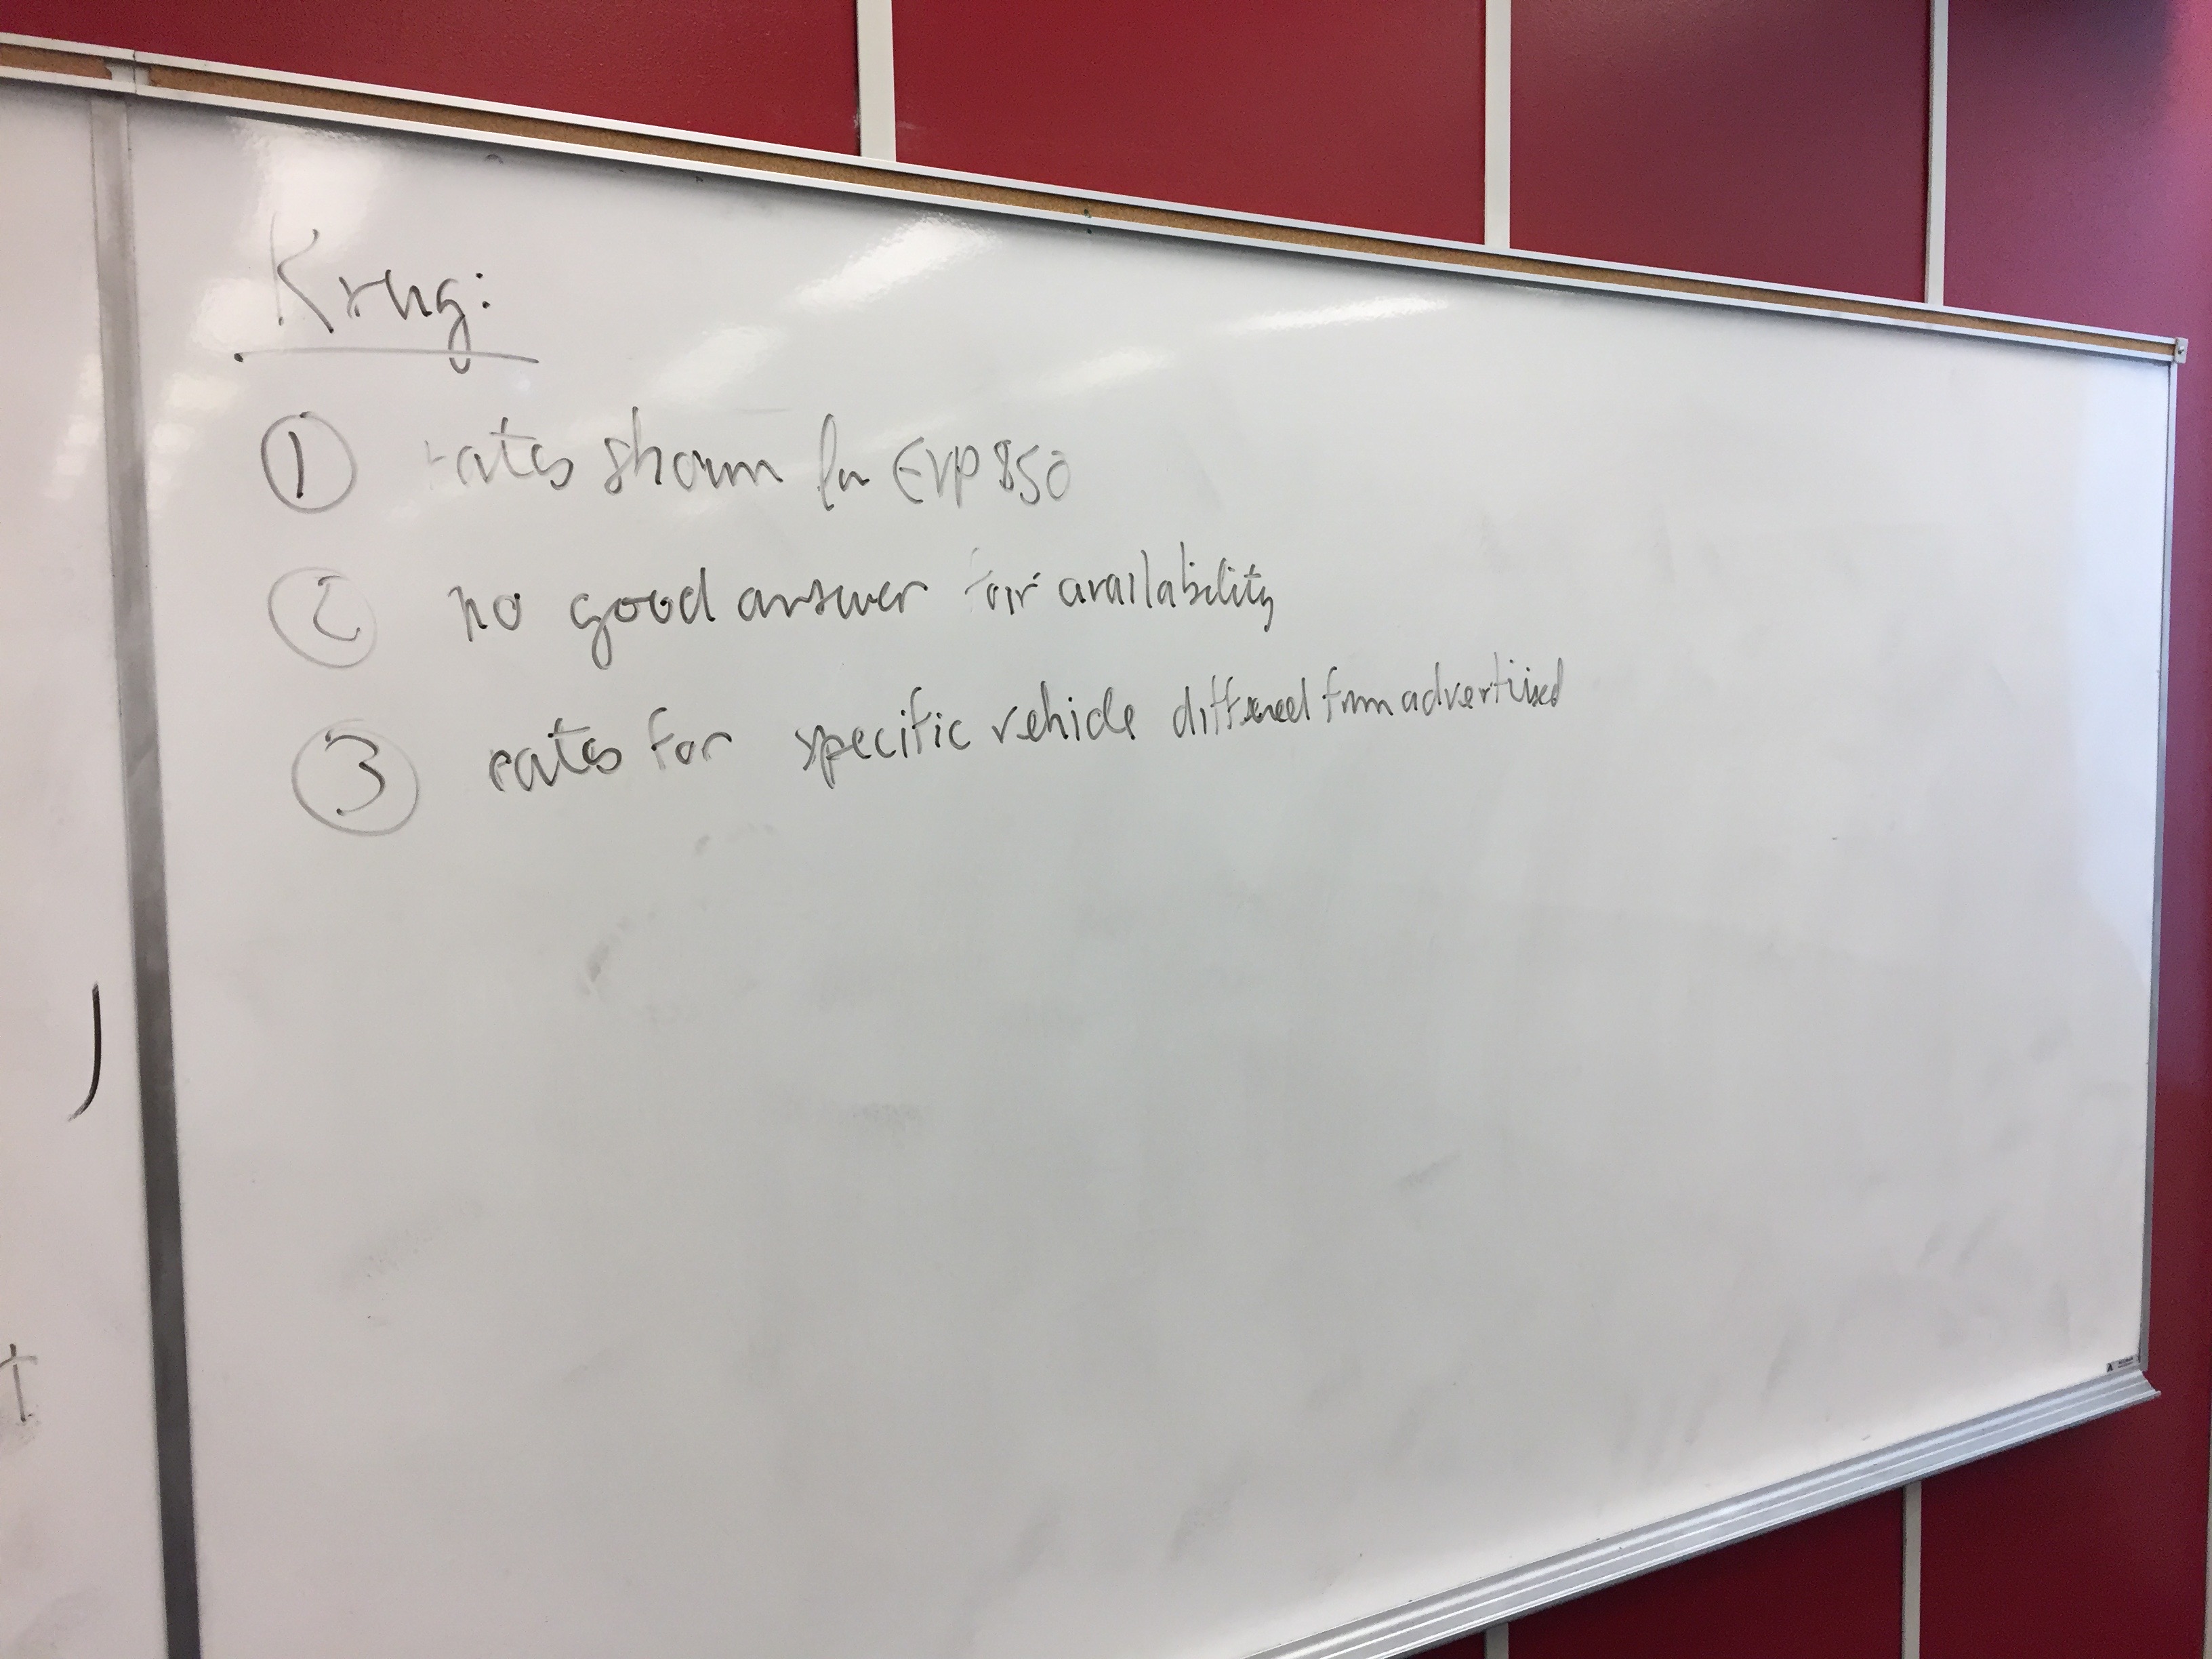 Krug:
① rates shown for EVP850
② no good answer for availability
③ rates for specific vehicle differed from advertised
t